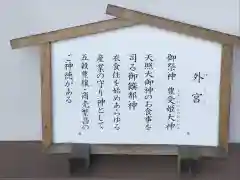 外宮
御祭神 豊受姫大神
天照大御神のお食事を
司る御饌都神
衣食住を始めあらゆる
産業の守り神として
五穀豊穣・商売繁昌の
ご神徳がある